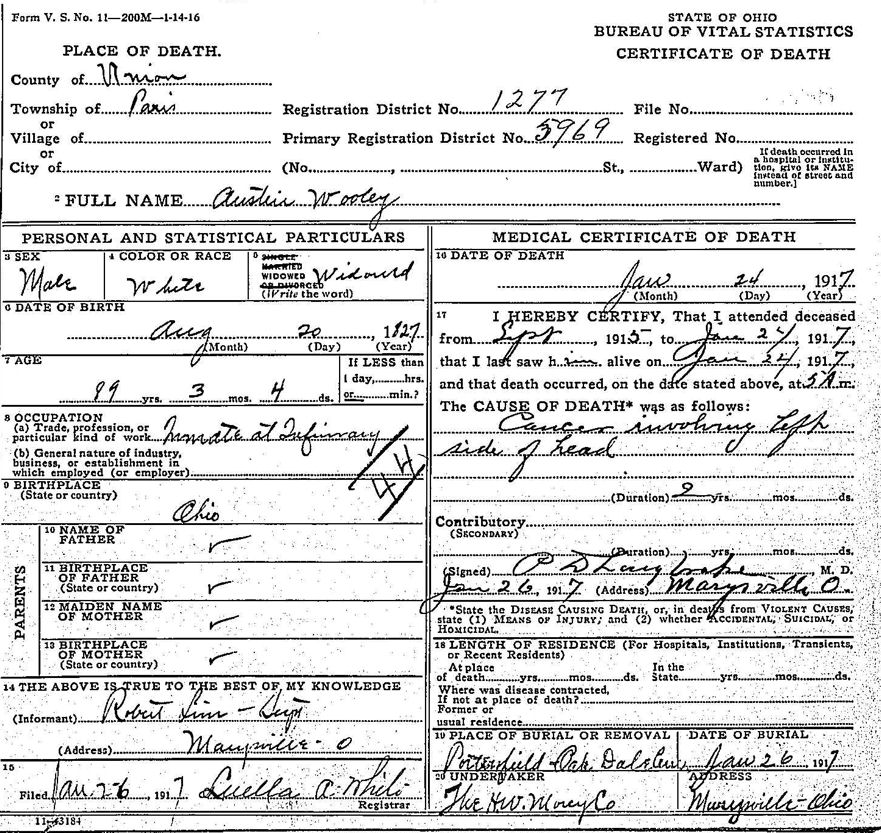 Form V. S. No. 11—200M—1-14-16
STATE OF OHIO
BUREAU OF VITAL STATISTICS
CERTIFICATE OF DEATH
PLACE OF DEATH.
County of Union
Township of Paris
or
Village of
or
City of
Registration District No. 1277
File No.
Primary Registration District No. 5969
Registered No.
(No. , St., Ward)
If death occurred in
a hospital or institu-
tion, give its NAME
instead of street and
number.]
2 FULL NAME Austin Wooley
PERSONAL AND STATISTICAL PARTICULARS
3 SEX
Male
4 COLOR OR RACE
White
5 SINGLE
MARRIED
WIDOWED
OR DIVORCED
(Write the word)
Widowed
6 DATE OF BIRTH
Aug 20 1827
(Month) (Day) (Year)
7 AGE
89 yrs. 3 mos. 4 ds.
If LESS than
1 day, hrs.
or min.?
8 OCCUPATION
(a) Trade, profession, or
particular kind of work Inmate at Infirmary
(b) General nature of industry,
business, or establishment in
which employed (or employer)
44
9 BIRTHPLACE
(State or country)
Ohio
PARENTS
10 NAME OF
FATHER
11 BIRTHPLACE
OF FATHER
(State or country)
12 MAIDEN NAME
OF MOTHER
13 BIRTHPLACE
OF MOTHER
(State or country)
14 THE ABOVE IS TRUE TO THE BEST OF MY KNOWLEDGE
(Informant) Robert - Supt
(Address) Marysville - O
15
Filed Jan 26, 1917 Luella A. White
Registrar
11-43184
MEDICAL CERTIFICATE OF DEATH
16 DATE OF DEATH
Jan 24, 1917
(Month) (Day) (Year)
17 I HEREBY CERTIFY, That I attended deceased
from Sept, 1915, to Jan 24, 1917,
that I last saw him alive on Jan 24, 1917,
and that death occurred, on the date stated above, at 5 A m.
The CAUSE OF DEATH* was as follows:
Cancer involving left
side of head
(Duration) 2 yrs. mos. ds.
Contributory
(SECONDARY)
(Duration) yrs. mos. ds.
(Signed) P D M. D.
Jan 26, 1917 (Address) Marysville O.
*State the DISEASE CAUSING DEATH, or, in deaths from VIOLENT CAUSES,
state (1) MEANS OF INJURY; and (2) whether ACCIDENTAL, SUICIDAL, or
HOMICIDAL.
18 LENGTH OF RESIDENCE (For Hospitals, Institutions, Transients,
or Recent Residents)
At place
of death yrs. mos. ds.
In the
State yrs. mos. ds.
Where was disease contracted,
If not at place of death?
Former or
usual residence
19 PLACE OF BURIAL OR REMOVAL
Oak Dale Cem
DATE OF BURIAL
Jan 26 1917
20 UNDERTAKER
The H.W. Morey Co
ADDRESS
Marysville - Ohio